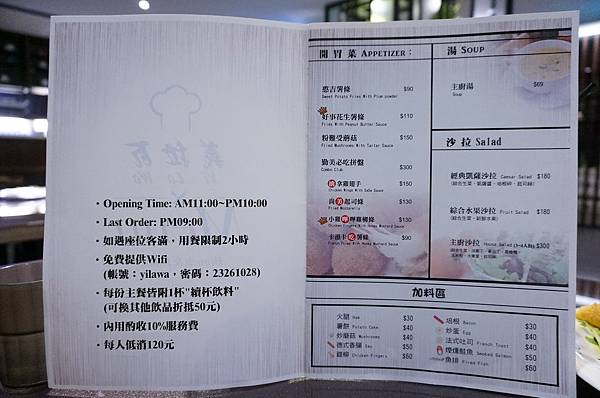 • Opening Time: AM11:00~PM10:00
• Last Order: PM09:00
• 如遇座位客滿，用餐限制2小時
• 免費提供Wifi
(帳號：yilawa，密碼：23261028)
• 每份主餐皆附1杯"續杯飲料"
(可換其他飲品折抵50元)
• 內用酌收10%服務費
• 每人低消120元
開胃菜 APPETIZER：
憨吉薯條 $90
Sweet Potato Fries With Plum powder
好事花生薯條 $110
Fries With Peanut Butter Sauce
粉雞受蘑菇 $150
Fried Mushrooms With Tartar Sauce
勤美必吃拼盤 $300
Combo Club
拿雞翅手 $150
Chicken Wings With Salsa Sauce
尚美起司條 $150
Fried Mozzarella
小雞嗶嗶雞柳條 $130
Chicken Fingers With Honey Mustard Sauce
卡滋卡吃薯條 $90
French Fries With Honey Mustard Sauce
湯 SOUP
主廚湯 $69
Soup
沙拉 Salad
經典凱薩沙拉 Caesar Salad $180
綜合水果沙拉 Fruit Salad $180
主廚沙拉 House Salad (3-4人份) $300
加料區
火腿 Ham $30
薯餅 Potato Cake $40
炒蘑菇 Mushrooms $40
德式香腸 Sau $50
雞柳 Chicken Fingers $60
培根 Bacon $30
炒蛋 Egg $30
法式吐司 French Toast $40
煙燻鮭魚 Smoked Salmon $50
魚排 Fired Fish $60